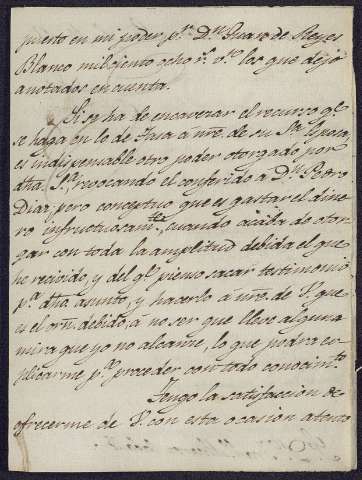 puerto en mi poder pr. Dn. Genaro de Reyes
Blanco mil ciento ocho rs. vn. los que dejo
anotados en cuenta.
Si se ha de encavezar el recurso qe.
se haga en lo de Jara á nre. de su Sra. Esposa,
es indispensable otro poder otorgado por
dha. Sa., revocando el conferido a Dn. Pedro
Diaz, pero conceptuo que es gastar el dine-
ro infructuosamte., cuando acaba de otor-
gar con toda la amplitud debida el que
he recivido, y del ql. pienso sacar testimonio
pa. dho. asunto, y hacerlo á nre. de V. que
es el orn. debido, á no ser que lleve alguna
mira que yo no alcance, lo que podra es-
plicarme pa. proceder con todo conocimto.
Tengo la satisfaccion de
ofrecerme de V. con esta ocasion atento